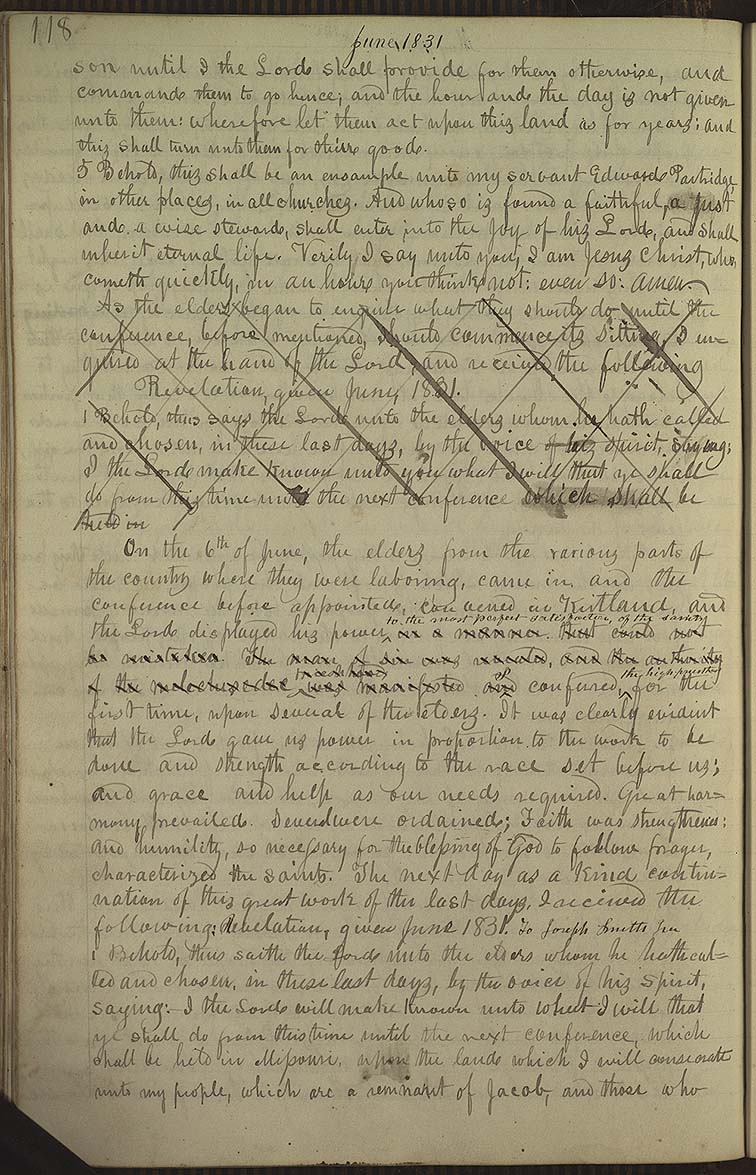 118
June 1831
son until I the Lord shall provide for them otherwise, and
command them to go hence; and the hour and the day is not given
unto them: wherefore let them act upon this land as for years: and
this shall turn unto them for their good.
5 Behold, this shall be an ensample unto my servant Edward Partridge,
in other places, in all churches. And whoso is found a faithful, a just
and a wise steward, shall enter into the joy of his Lord, and shall
inherit eternal life. Verily I say unto you, I am Jesus Christ, who
cometh quickly, in an hour you think not: even so: amen
As the elders began to enquire what they should do until the
conference, before mentioned, should commence its sitting, I en-
quired at the hand of the Lord, and received the following
Revelation, given June, 1831.
1 Behold, thus says the Lord unto the elders whom he hath called
and chosen, in these last days, by the voice of his spirit, saying;
I the Lord make known unto you what I will that ye shall
do from this time until the next conference which shall be
held in
On the 6th of June, the elders from the various parts of
the country where they were laboring, came in, and the
conference before appointed, convened in Kirtland, and
to the most perfect satisfaction, of the saints
the Lord displayed his power, in a manner. that could not
be mistaken. The man of sin was revealed, and the authority
priesthood the high priesthood
of the melchisedec was manifested and confered, for the
first time, upon several of the elders. It was clearly evident
that the Lord gave us power in proportion to the work to be
done and strength according to the race set before us;
and grace and help as our needs required. Great har=
mony prevailed. Several were ordained; Faith was strengthened;
and humility, so necessary for the blessing of God to follow prayer,
characterized the saints. The next day as a kind contin=
nation of this great work of the last days, I received the
following: Revelation, given June 1831. To Joseph Smith Jun
1 Behold, thus saith the Lord unto the elders whom he hath cal=
led and chosen, in these last days, by the voice of his spirit,
saying:- I the Lord will make known unto what I will that
ye shall do from this time until the next conference, which
shall be held in Missouri, upon the land which I will consecrate
unto my people, which are a remnant of Jacob, and those who